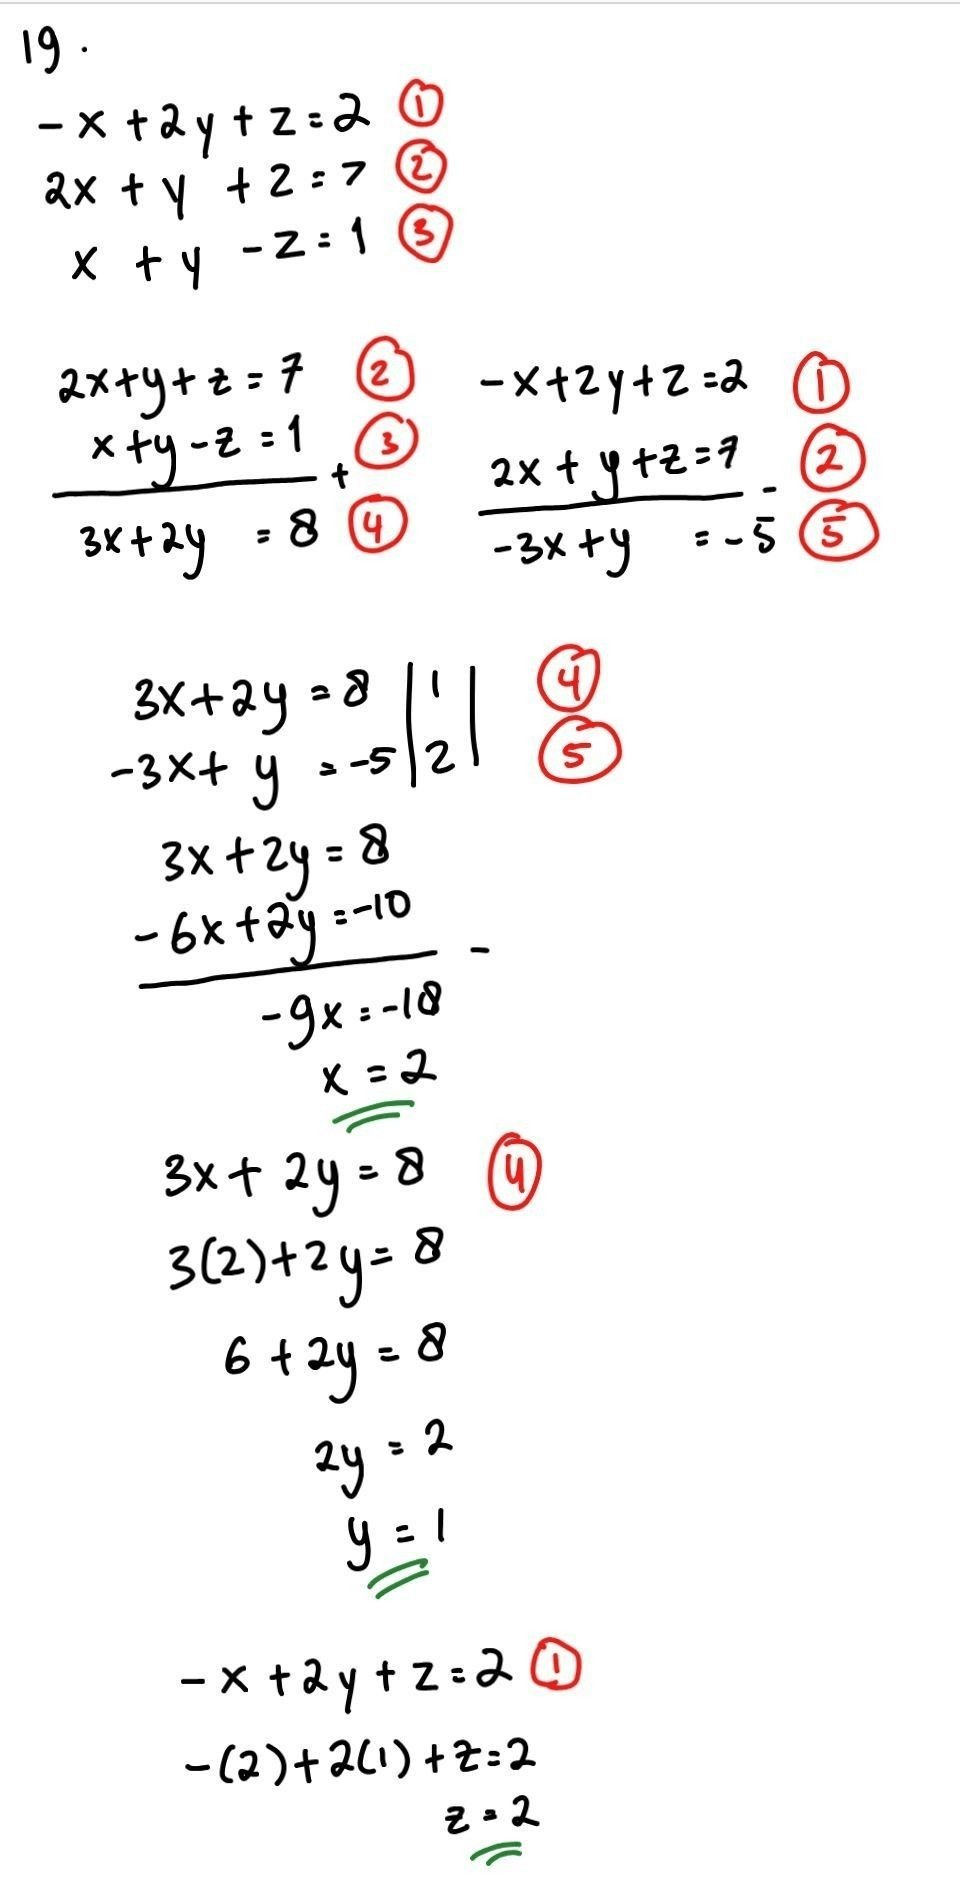 19.
-x + 2y + z = 2 ①
2x + y + z = 7 ②
x + y - z = 1 ③
2x+y+z = 7 ②
x+y-z = 1 ③
+
3x+2y = 8 ④
-x+2y+z = 2 ①
2x + y + z = 7 ②
-
-3x + y = -5 ⑤
3x+2y = 8 | 1 | ④
-3x + y = -5 | 2 | ⑤
3x + 2y = 8
-6x + 2y = -10
-
-9x = -18
x = 2
3x + 2y = 8 ④
3(2)+2y = 8
6 + 2y = 8
2y = 2
y = 1
-x + 2y + z = 2 ①
-(2)+2(1)+z=2
z = 2